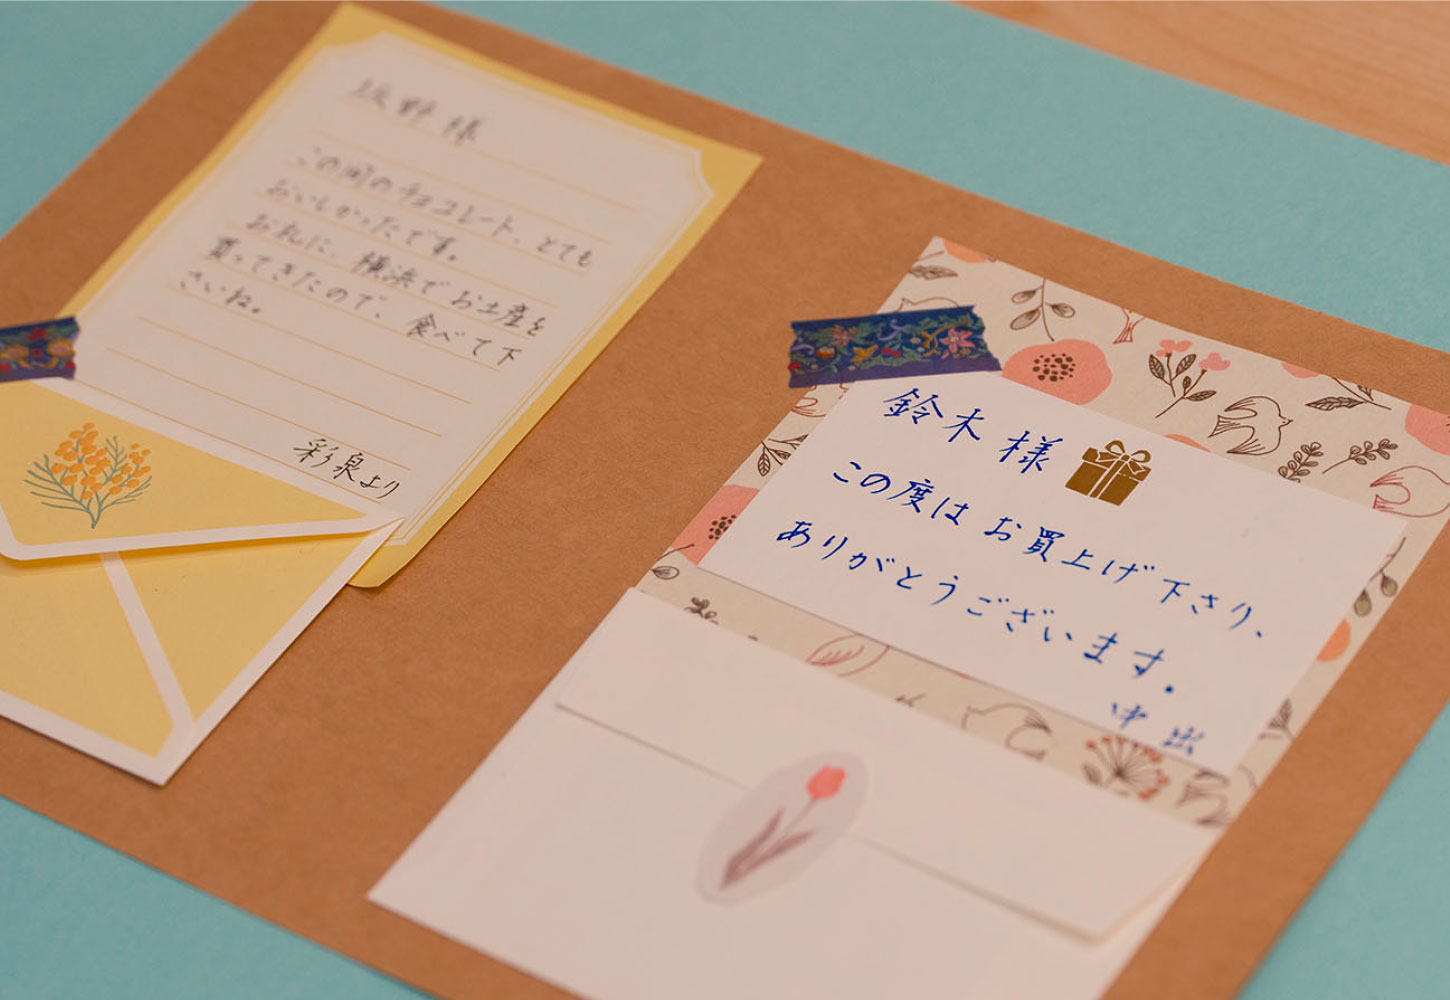 坂野様
この間のチョコレート、とても
おいしかったです。
お礼に、横浜でお土産を
買ってきたので、食べて下
さいね。
彩泉より
鈴木様
この度はお買上げ下さり、
ありがとうございます。
中出